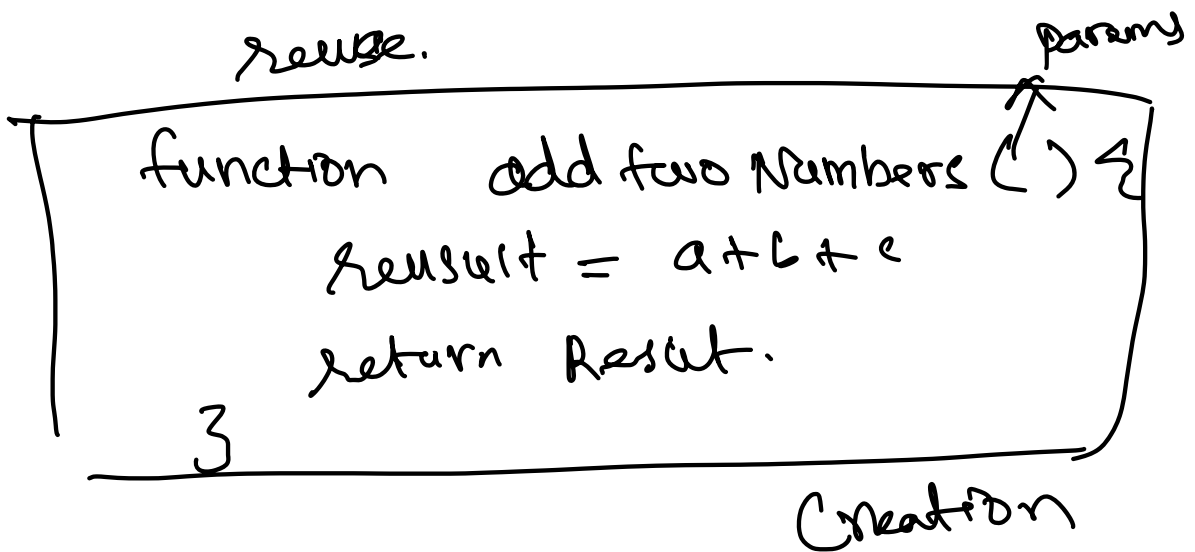 reuse.
params
function addtwoNumbers() {
reusult = a+b+c
return Result.
}
Creation